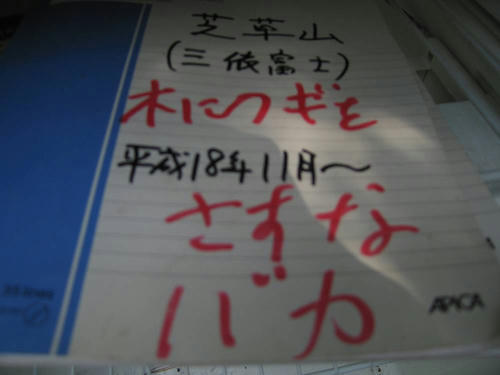 芝草山
(三依富士)
木にクギを
平成18年11月～
さすな
バカ
APICA